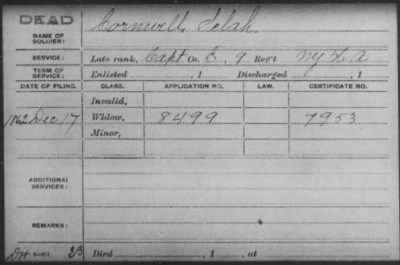 DEAD
NAME OF SOLDIER: Cornwell, Selah.
SERVICE: Late rank, Capt. Co. E, 9 Reg't NY H A.
TERM OF SERVICE: Enlisted , 1 Discharged , 1
DATE OF FILING. CLASS. APPLICATION NO. LAW. CERTIFICATE NO.
Invalid,
1862 Dec. 17 Widow, 8499 7953
Minor,
ADDITIONAL SERVICES:
REMARKS:
Died , 1 , at